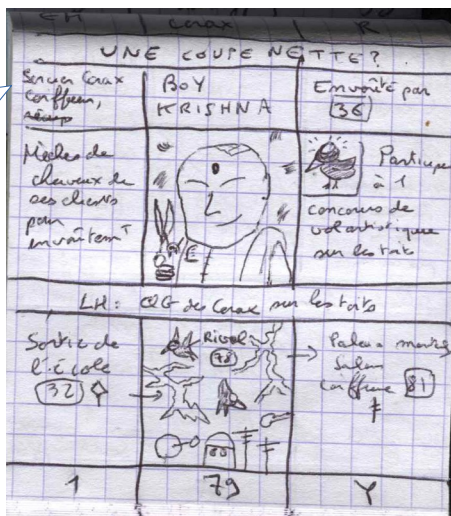 EH Corax R
UNE COUPE NETTE?
Sorcier Corax
coiffeur,
BOY
KRISHNA
Envoûté par
36
Mèches de
cheveux de
ses clients
pour
envoûtemT
Participe
à 1
concours de
vol artistique
sur les toits
LH: QG des Corax sur les toits
Sortie de
l'école
32
Rival
78
→ Palea montre
Salon
coiffure 81
1
79
Y